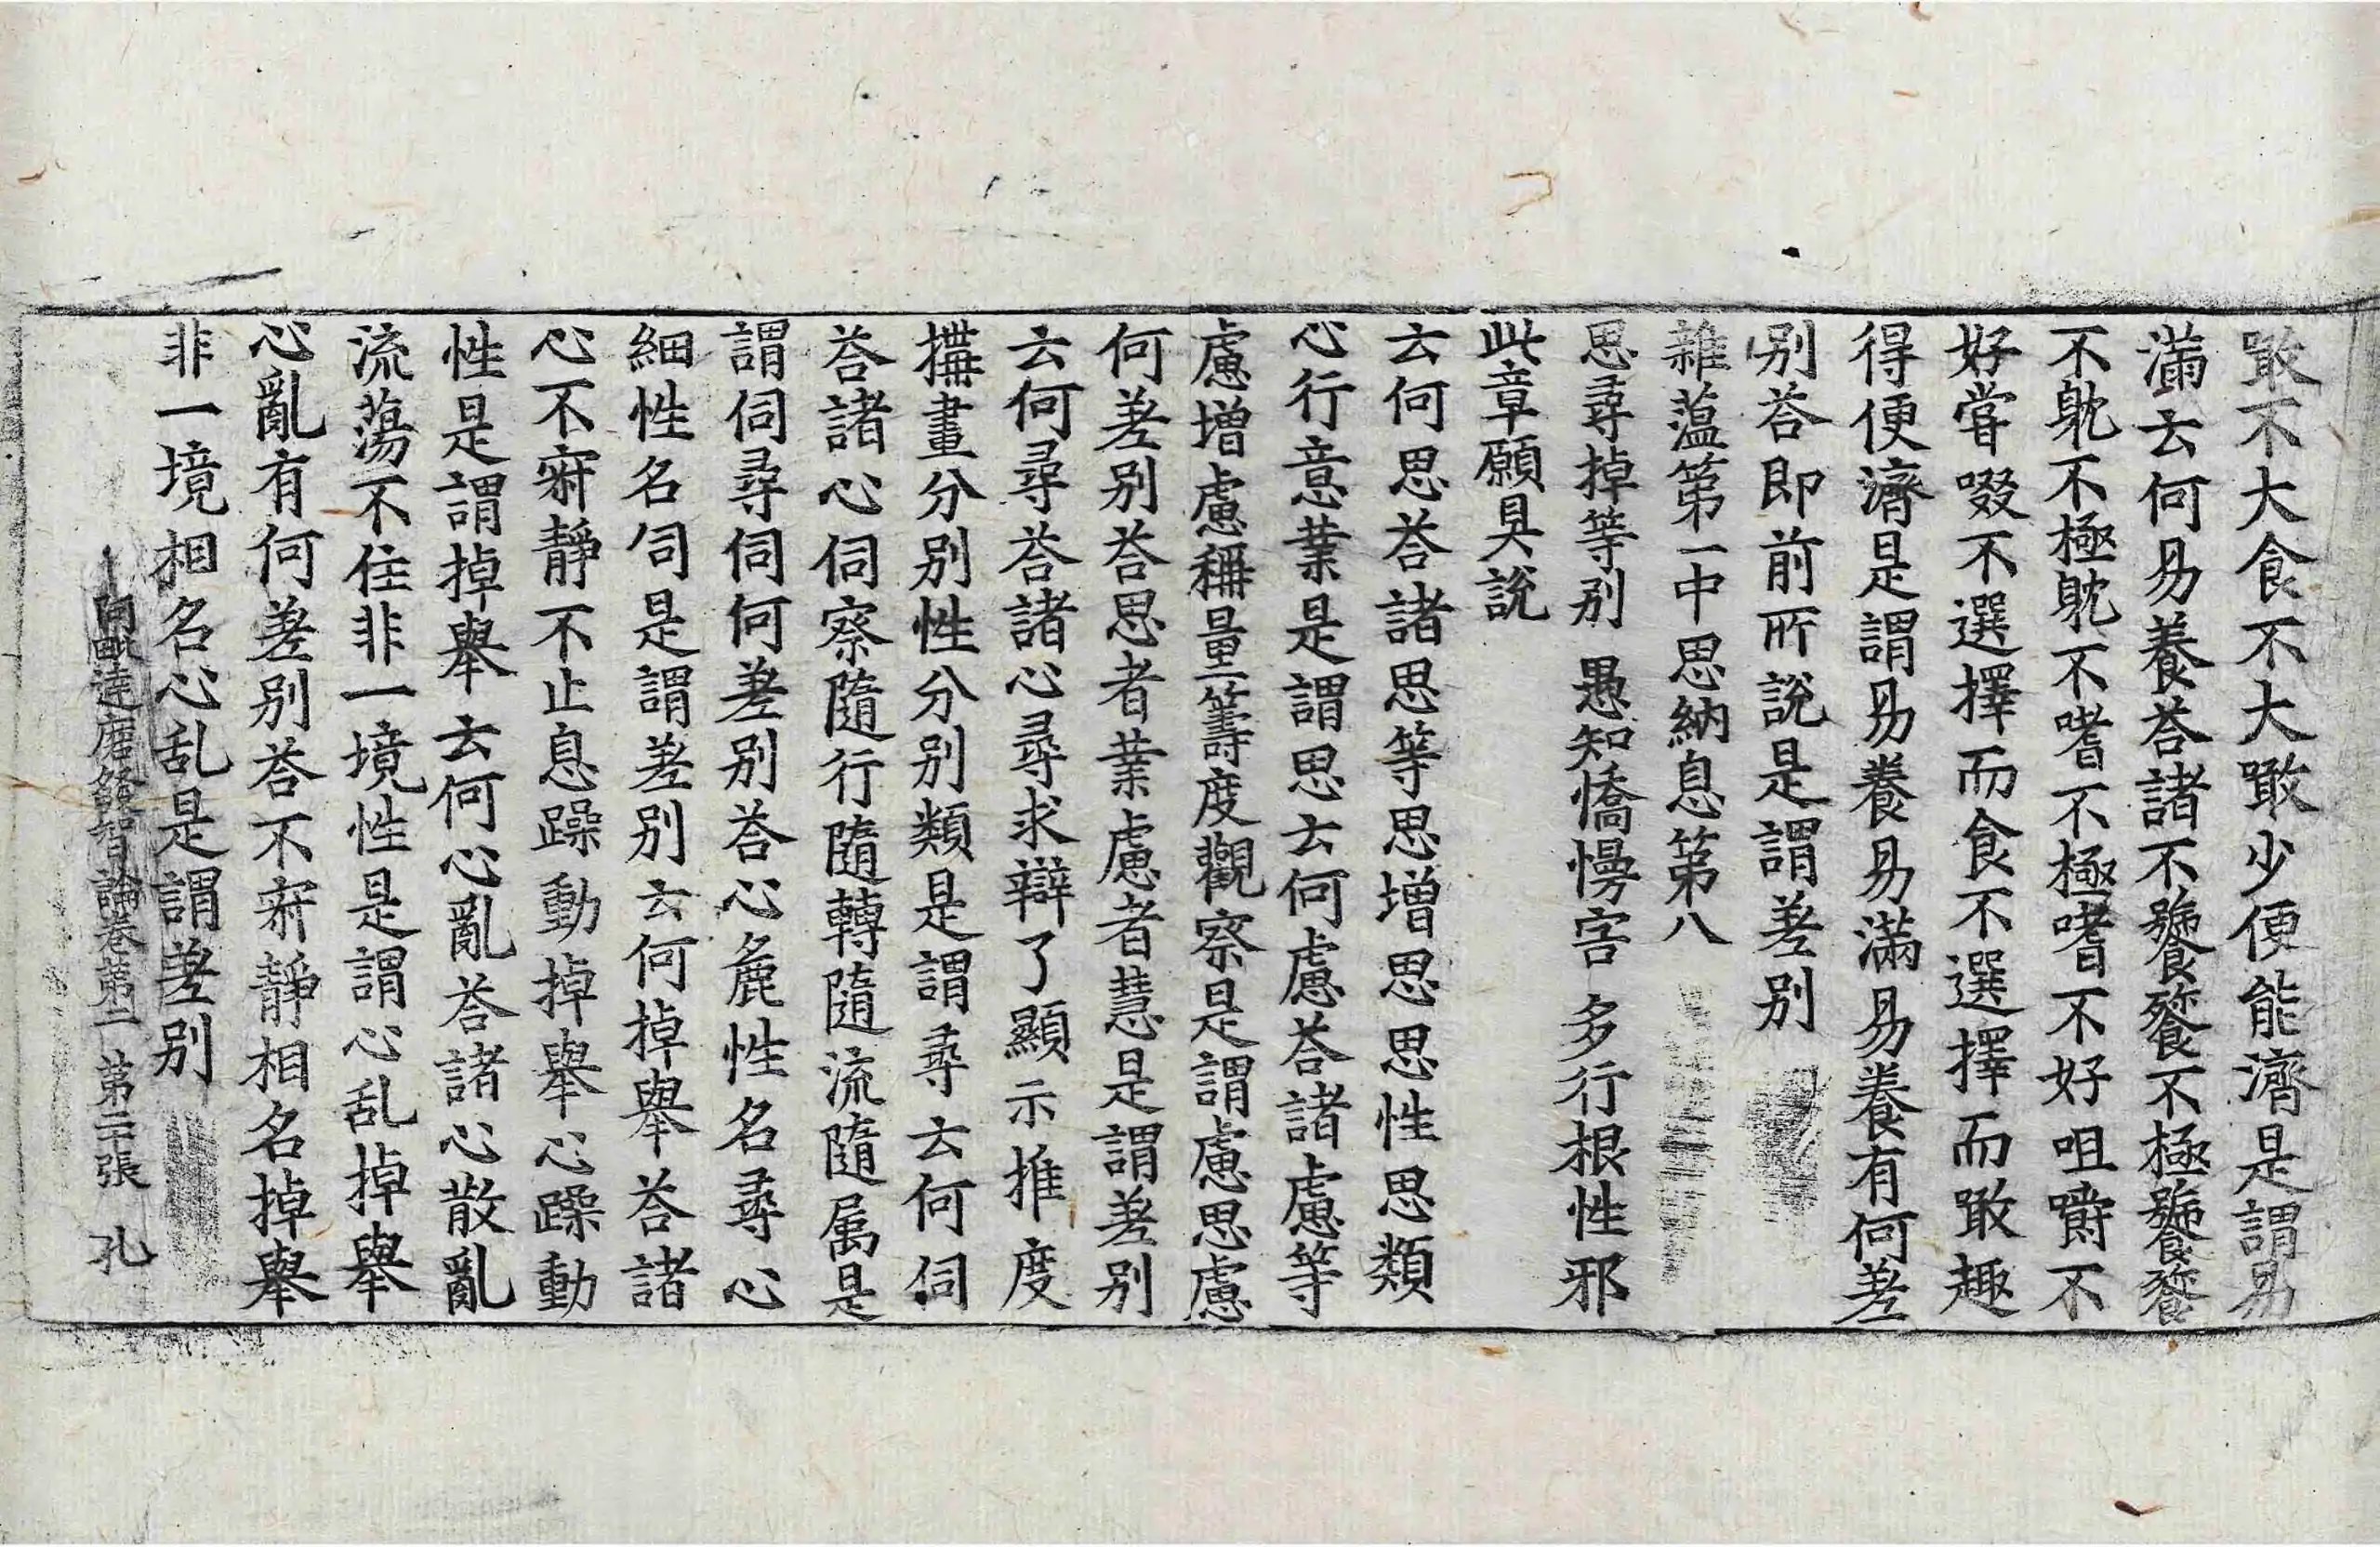 噉不大食不大噉少便能濟是謂易
滿云何易養荅諸不饕餮不極饕餮
不躭不極躭不嗜不極嗜不好咀嚼不
好甞啜不選擇而食不選擇而噉趣
得便濟是謂易養易滿易養有何差
別荅即前所說是謂差別
雜蘊第一中思納息第八
思尋掉等別 愚知憍慢害 多行根性邪
此章願具說
云何思荅諸思等思增思思性思類
心行意業是謂思云何慮荅諸慮等
慮增慮稱量籌度觀察是謂慮思慮
何差別荅思者業慮者慧是謂差別
云何尋荅諸心尋求辯了顯示推度
搆畫分別性分別類是謂尋云何伺
荅諸心伺察隨行隨轉隨流隨属是
謂伺尋伺何差別荅心麁性名尋心
細性名伺是謂差別云何掉舉荅諸
心不寂靜不止息躁動掉舉心躁動
性是謂掉舉云何心亂荅諸心散亂
流蕩不住非一境性是謂心乱掉舉
心亂有何差別荅不寂靜相名掉舉
非一境相名心乱是謂差別
阿毗達磨發智論卷第二 第二十張 孔